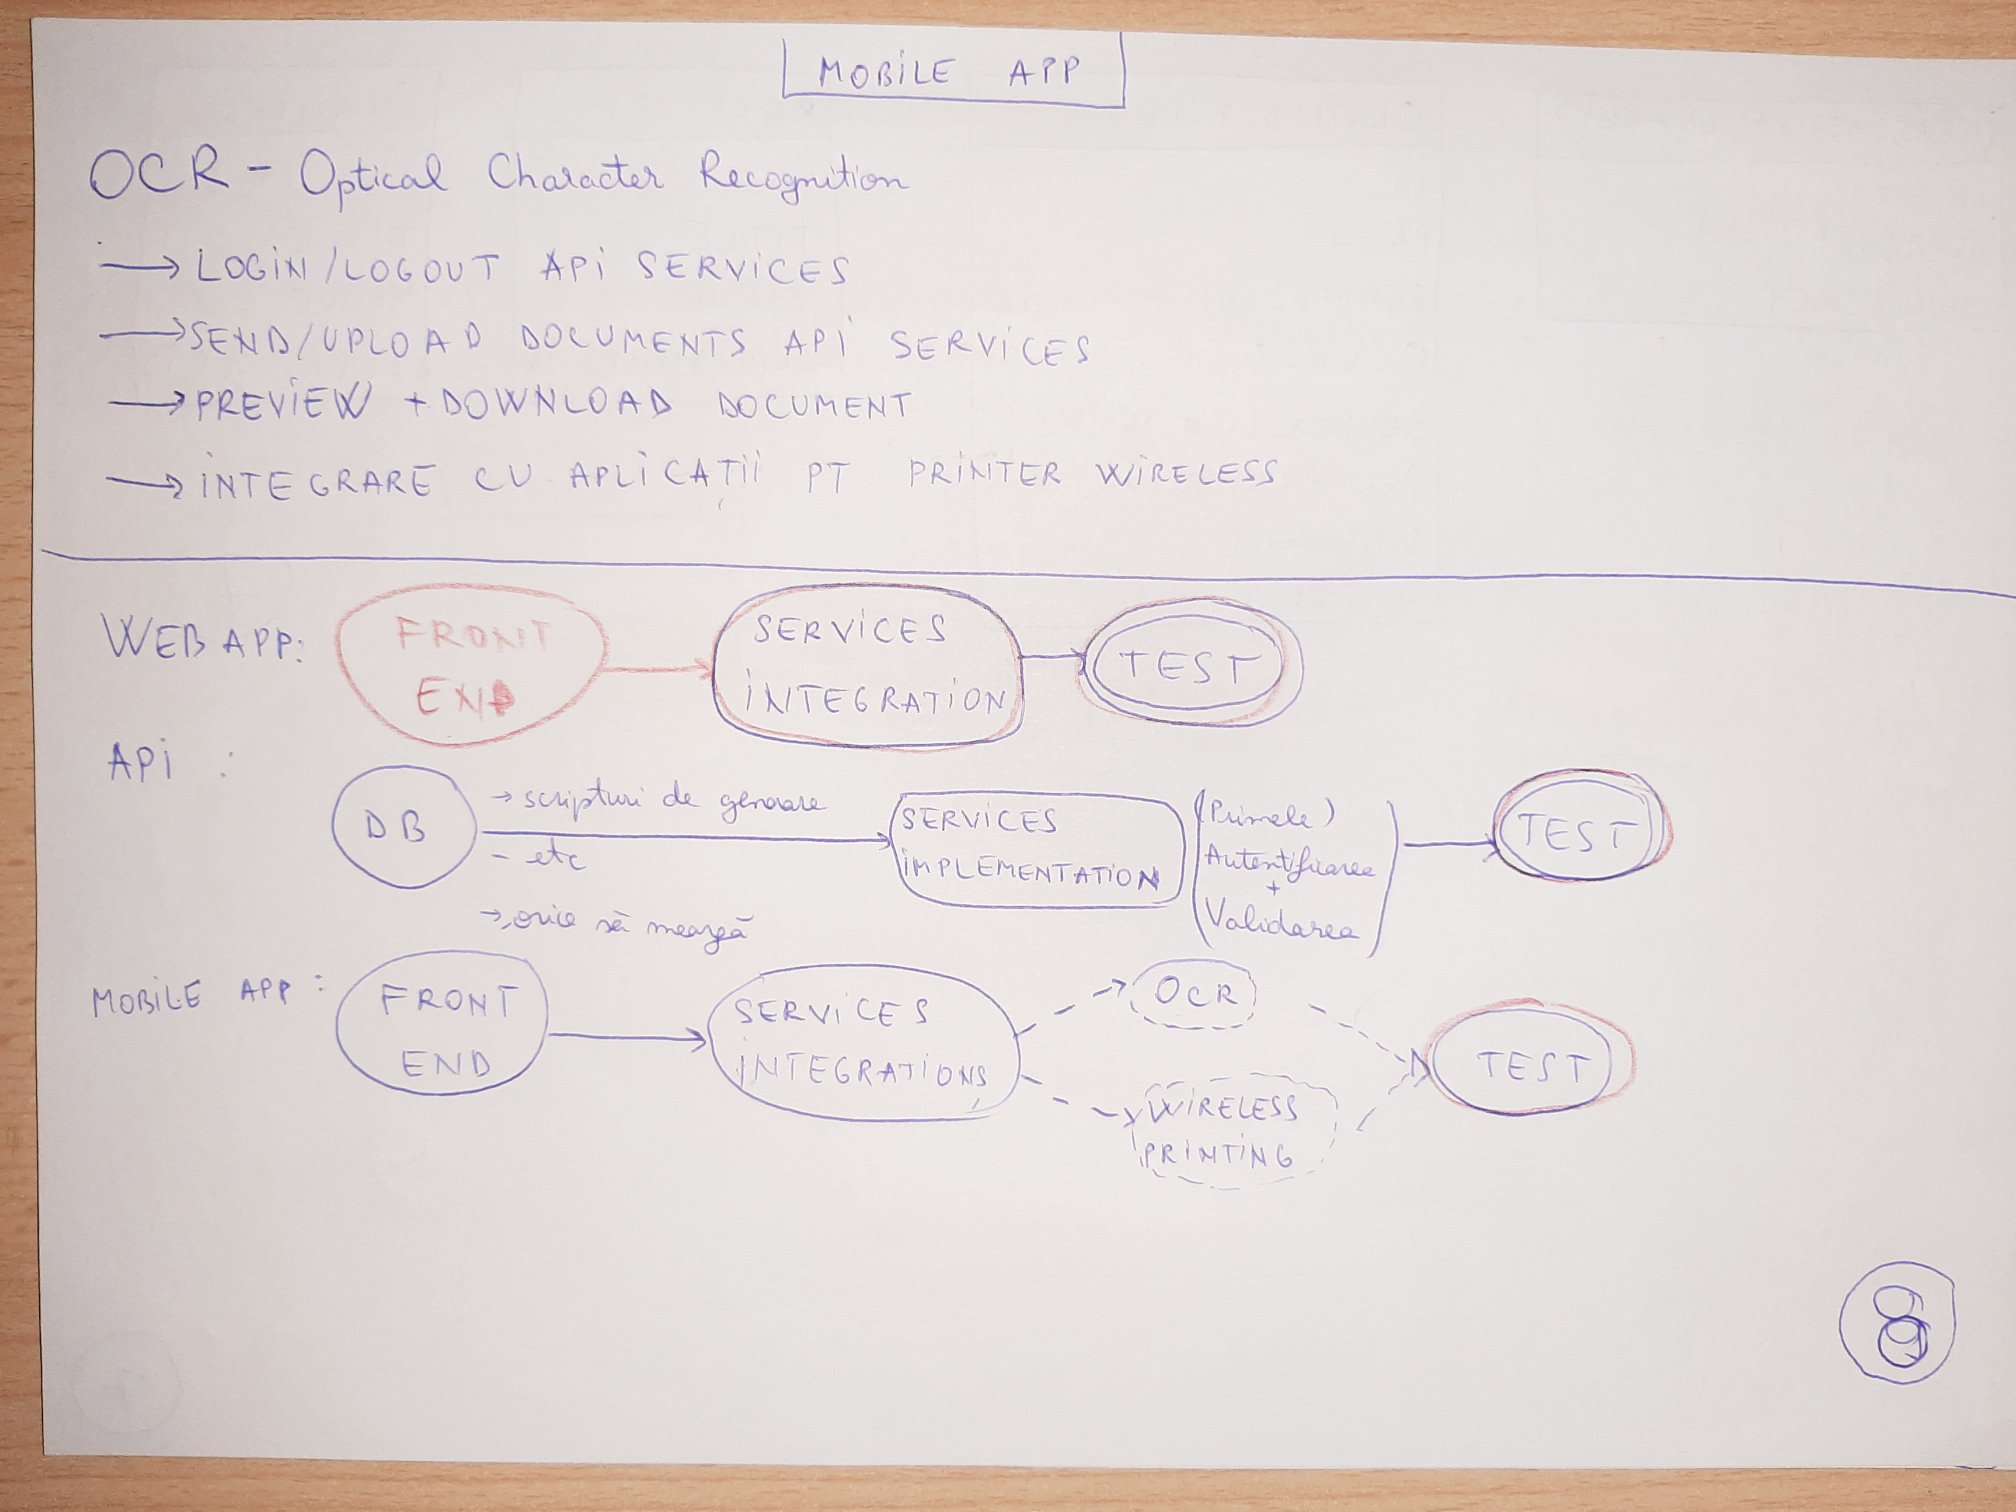 MOBILE APP
OCR - Optical Character Recognition
→ LOGIN/LOGOUT API SERVICES
→ SEND/UPLOAD DOCUMENTS API SERVICES
→ PREVIEW + DOWNLOAD DOCUMENT
→ INTEGRARE CU APLICAȚII PT PRINTER WIRELESS
WEB APP:
FRONT
END
SERVICES
INTEGRATION
TEST
API :
DB
→ scripturi de generare
- etc
→ orice să meargă
SERVICES
IMPLEMENTATION
(Primele)
Autentificarea
+
Validarea
TEST
MOBILE APP :
FRONT
END
SERVICES
INTEGRATIONS
OCR
WIRELESS
PRINTING
TEST
8